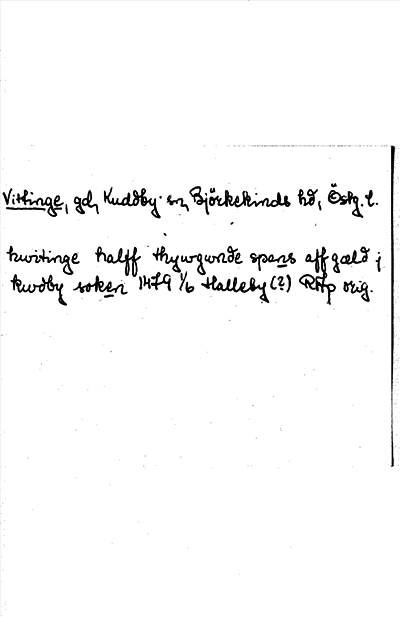 Vittinge, gd, Kuddby sn, Björkekinds hd, Östg. l.
hwitinge halff thywgwnde spans aff gæld j
kwdby soken 1479 1/6 Halleby (?) RAp orig.